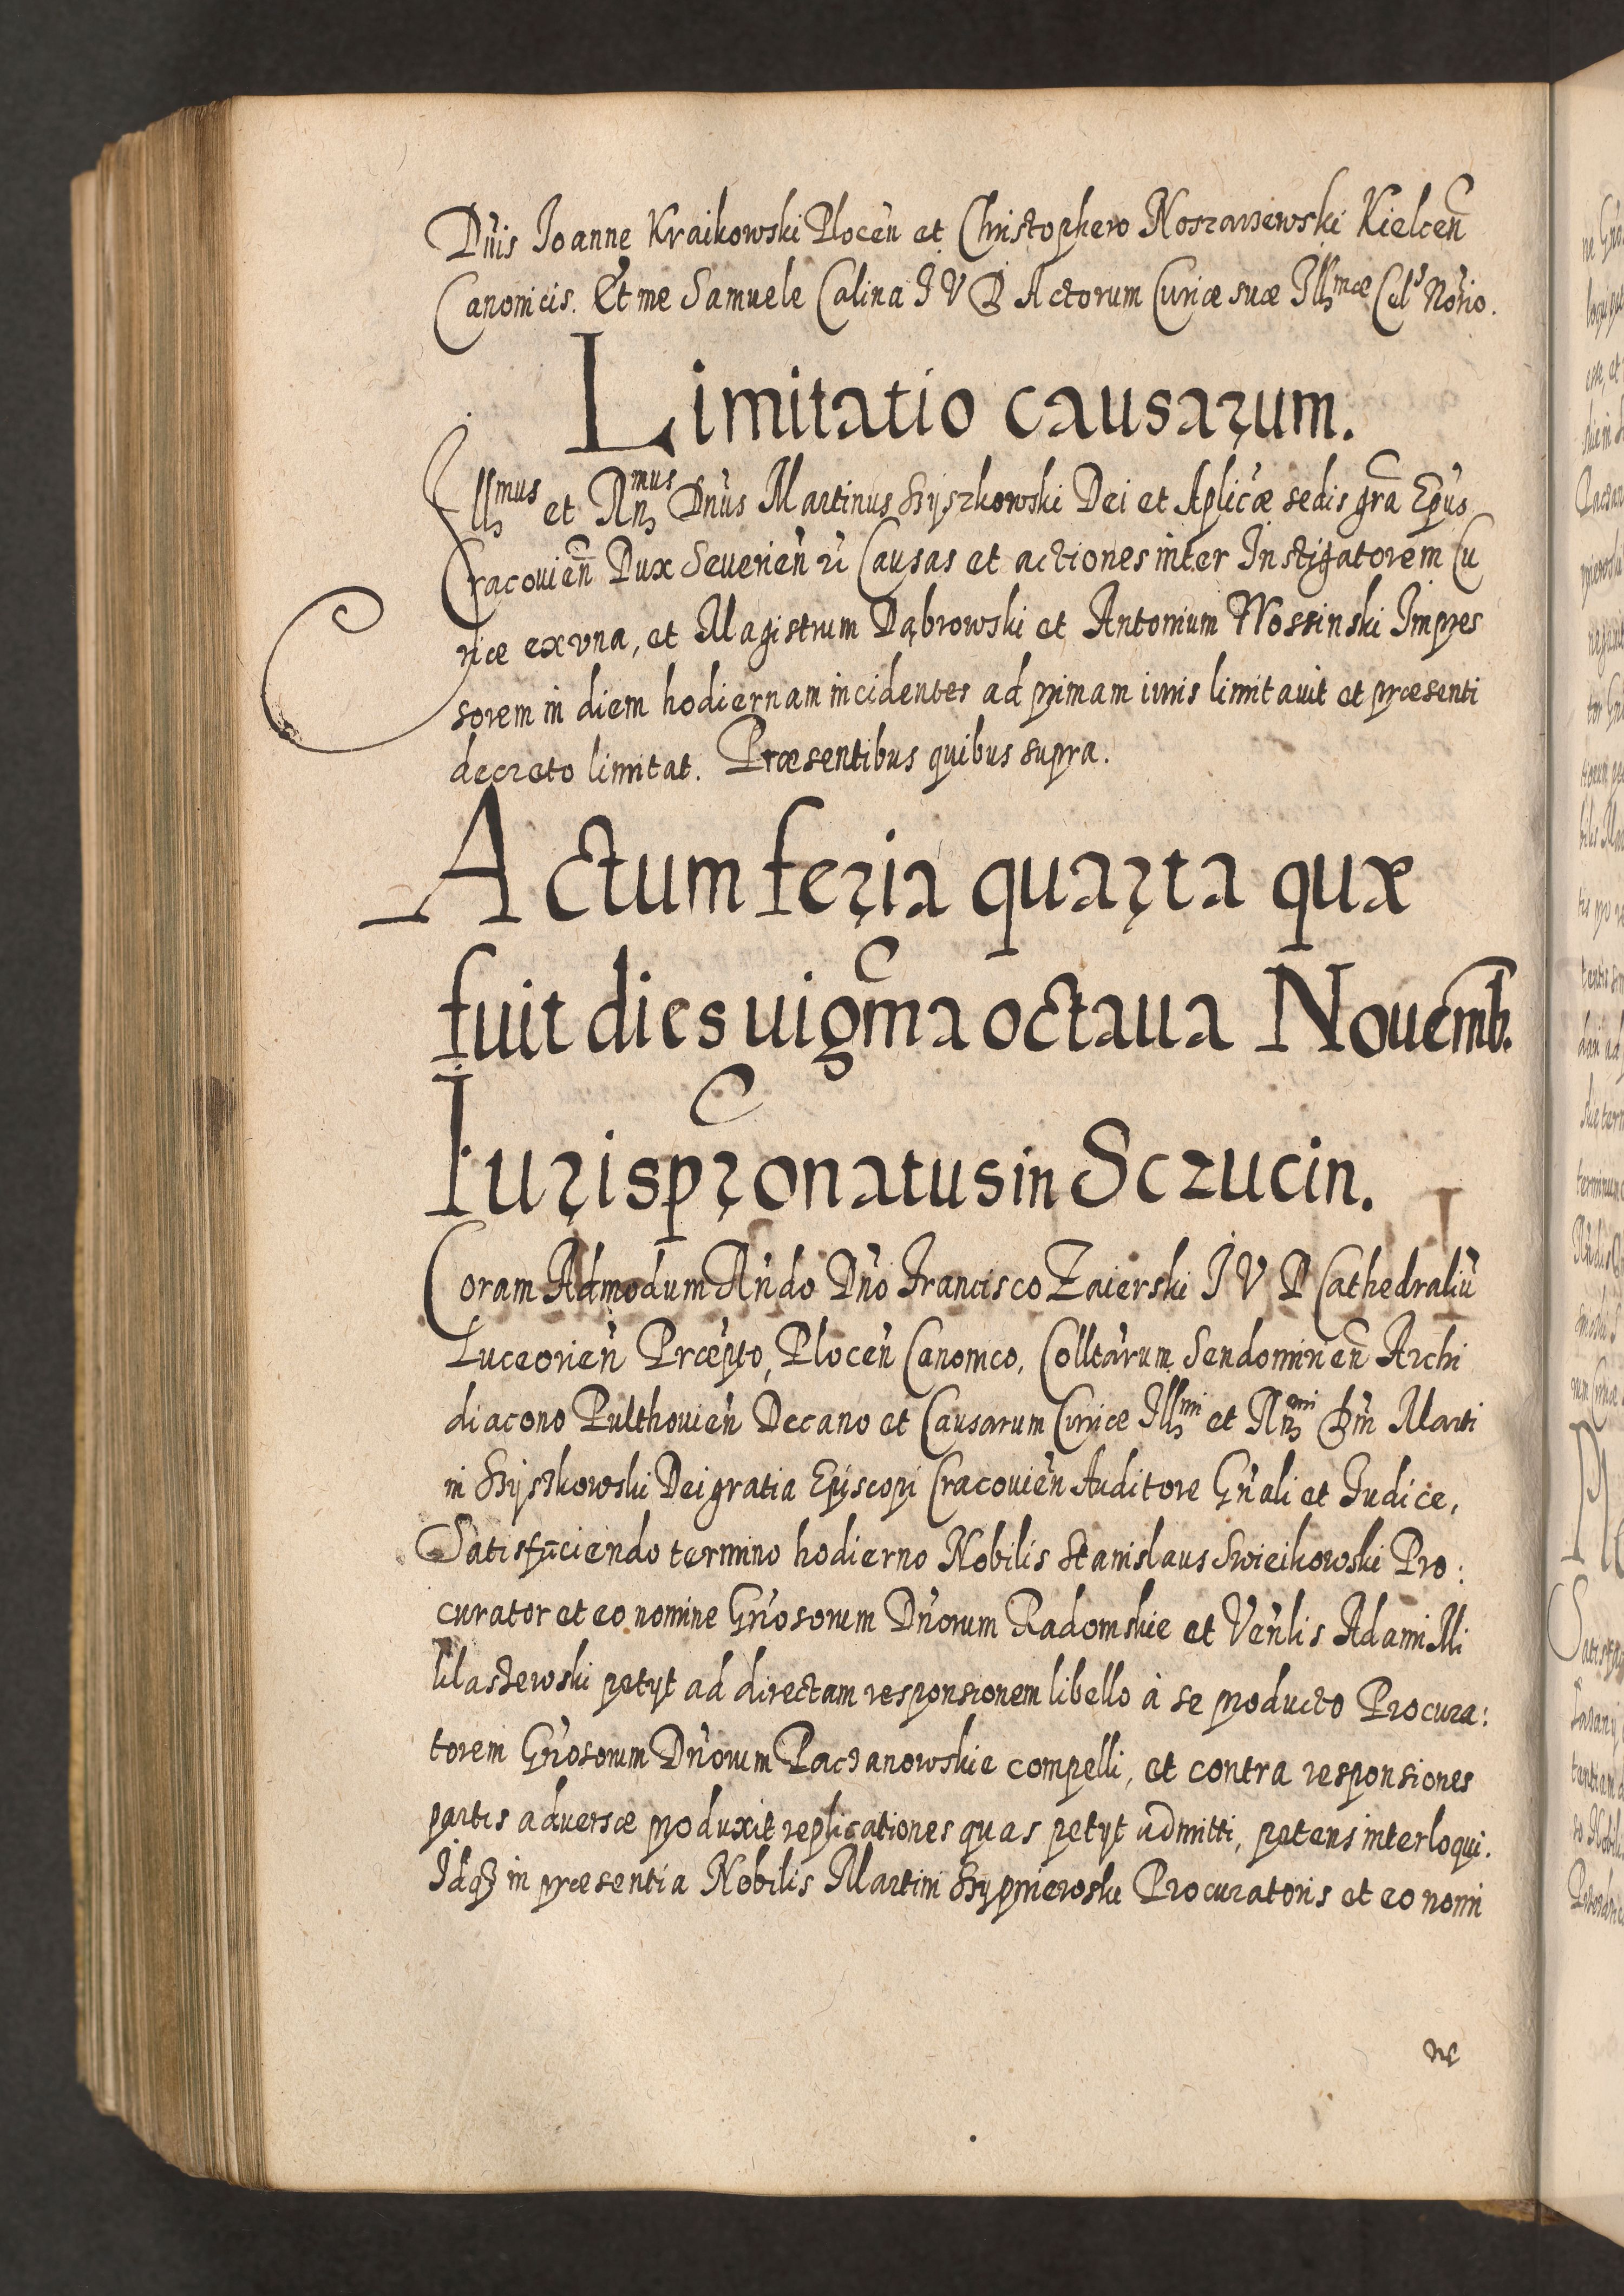 Dnis Joanne Kraikowski Plocen et Christophero Noszarzewski Kielcen
Canonicis. Et me Samuele Calina J V D Actorum Curiæ suæ Illmæ Cels Norio.
Limitatio causarum.
Illmus et Rnmus Dnus Martinus Szyszkowski Dei et Aplicæ sedis gra Epus
Cracovien Dux Severien Causas et actiones inter Instigatorem Cu
riæ ex vna, et Magistrum Dąbrowski et Antonium Wossinski Impres
sorem in diem hodiernam incidentes ad primam iuris limitauit et præsenti
decreto limitat. Præsentibus quibus supra.
Actum feria quarta quæ
fuit dies uigma octaua Nouemb.
Iurispronatus in Sczucin.
Coram Admodum Rndo Dno Francisco Zaierski J V D Cathedraliu
Luceorien Præpto, Plocen Canonico, Colltarum Sendomirien Archi
diacono Pulthouien Decano et Causarum Curiæ Illmi et Rnmi Dni Marti
ni Szyszkowski Dei gratia Episcopi Cracouien Auditore Gnali et Iudice,
Satisfaciendo termino hodierno Nobilis Stanislaus Swieikowski Pro:
curator et eo nomine Gnosorum Dnorum Radomskie et Venlis Adami Mi
klaszewski petyt ad directam responsionem libello à se producto Procura:
torem Gnosorum Dnorum Paczanowskie compelli, et contra responsiones
partis aduersæ produxit replicationes quas petyt admitti, petens interloqui.
Idq3 in præsentia Nobilis Martini Szypnieroski Procuratoris et eo nomi
ne